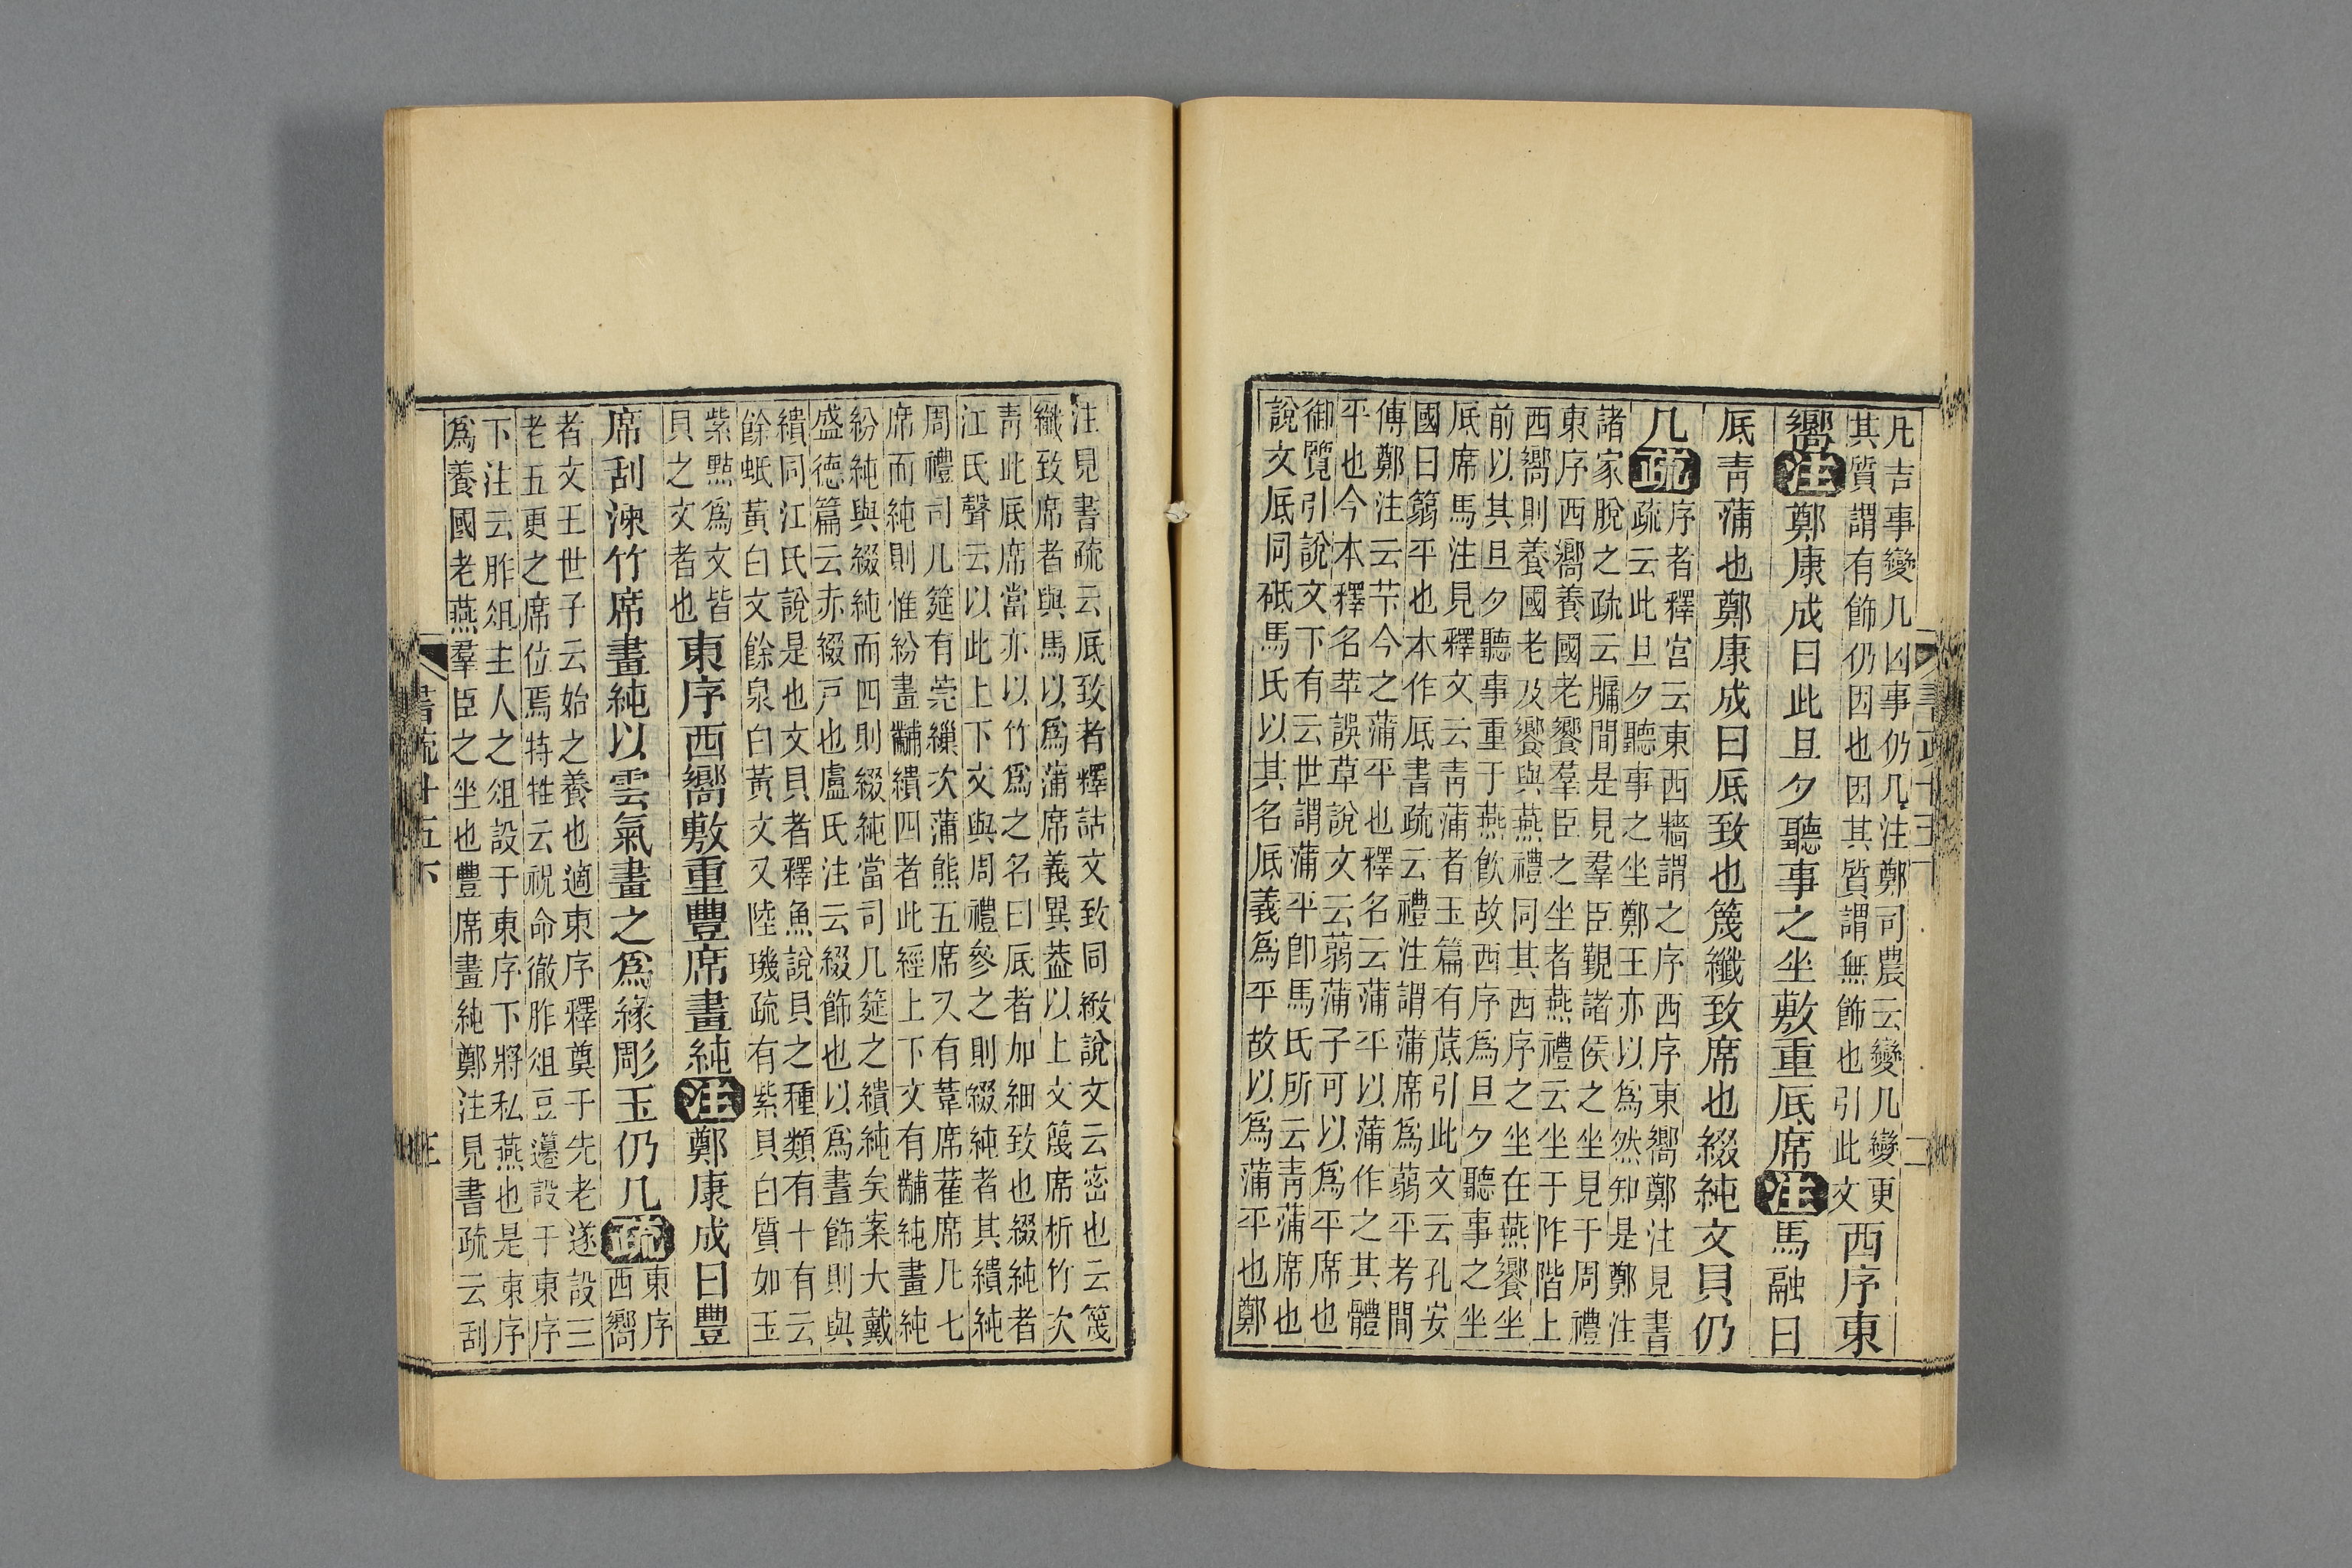 凡吉事變几凶事仍几注鄭司農云變几變更
其質謂有飾仍因也因其質謂無飾也引此文
西序東
嚮注鄭康成曰此旦夕聽事之坐敷重底席注馬融曰
底青蒲也鄭康成曰底致也篾纖致席也綴純文貝仍
几疏
序者釋宮云東西牆謂之序西序東嚮鄭注見書
疏云此旦夕聽事之坐鄭王亦以爲然知是鄭注
諸家脫之疏云牖閒是見羣臣覲諸侯之坐見于周禮
東序西嚮養國老饗羣臣之坐者燕禮云坐于阼階上
西嚮則養國老及饗與燕禮同其西序之坐在燕饗坐
前以其旦夕聽事重于燕飲故西序爲旦夕聽事之坐
底席馬注見釋文云青蒲者玉篇有菧引此文云孔安
國曰蒻平也本作底書疏云禮注謂蒲席爲蒻平考閒
傳鄭注云苄今之蒲平也釋名云蒲平以蒲作之其體
平也今本釋名苹誤草說文云蒻蒲子可以爲平席也
御覽引說文下有云世謂蒲平卽馬氏所云青蒲席也
說文底同砥馬氏以其名底義爲平故以爲蒲平也鄭
注見書疏云底致者釋詁文致同緻說文云密也云篾
纖致席者與馬以爲蒲席義異葢以上文篾席析竹次
青此底席當亦以竹爲之名曰底者加細致也綴純者
江氏聲云以此上下文與周禮參之則綴純者其繢純
周禮司几筵有莞繅次蒲熊五席又有葦席萑席凡七
席而純則惟紛畫黼繢四者此經上下文有黼純畫純
紛純與綴純而四則綴純當司几筵之繢純矣案大戴
盛德篇云赤綴戸也盧氏注云綴飾也以爲畫飾則與
繢同江氏說是也文貝者釋魚說貝之種類有十有云
餘蚳黃白文餘泉白黃文又陸璣疏有紫貝白質如玉
紫㸃爲文皆
貝之文者也
東序西嚮敷重豐席畫純注鄭康成曰豐
席刮湅竹席畫純以雲氣畫之爲緣彫玉仍几疏
東序
西嚮
者文王世子云始之養也適東序釋奠于先老遂設三
老五更之席位焉特牲云祝命徹胙俎豆籩設于東序
下注云胙俎主人之俎設于東序下將私燕也是東序
爲養國老燕羣臣之坐也豐席畫純鄭注見書疏云刮
書疏十五下